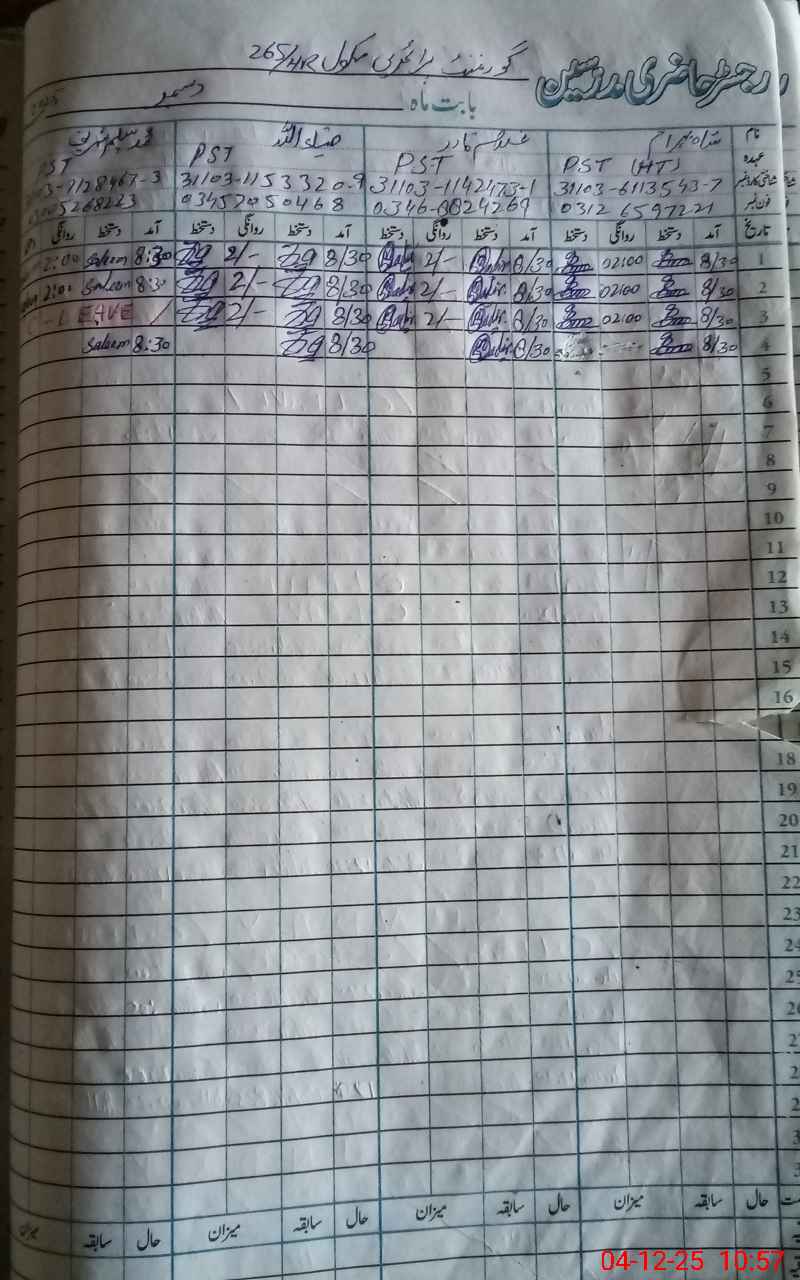 رجسٹر حاضری مدرسین گورنمنٹ پرائمری سکول 265/HR
بابت ماہ دسمبر
نام شاہ بہرام غلام قادر ضیاء اللہ محمد سلیم شریف
عہدہ PST (HT) PST PST PST
31103-6113543-7 31103-1142173-1 31103-1153320-9
فون نمبر 0312 6597221 0346-8824269 03457050468
تاریخ آمد دستخط روانگی دستخط آمد دستخط روانگی دستخط آمد دستخط روانگی دستخط آمد دستخط روانگی
1 8/30 02:00 8/30 Qadir 2/- 8/30 2/- 8:30 Saleem 2:00
2 8/30 02:00 8/30 Qadir 2/- 8/30 2/- 8:30 Saleem 2:00
3 8/30 02:00 8/30 Qadir 2/- 8/30 2/- LEAVE
4 8/30 8/30 Qadir 8/30 8:30 Saleem
5
6
7
8
9
10
11
12
13
14
15
16
18
19
20
21
22
23
24
25
حال سابقہ میزان حال سابقہ میزان حال سابقہ میزان حال سابقہ میزان
04-12-25 10:57